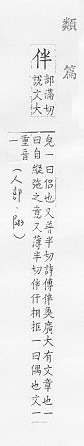 類篇
伴
部滿切
說文大
皃一曰侶也又普半切詩傳伴奐廣大有文章也一
曰自縱弛之意又薄半切伴仠相拒一曰偶也文一
重音
一
(人部·